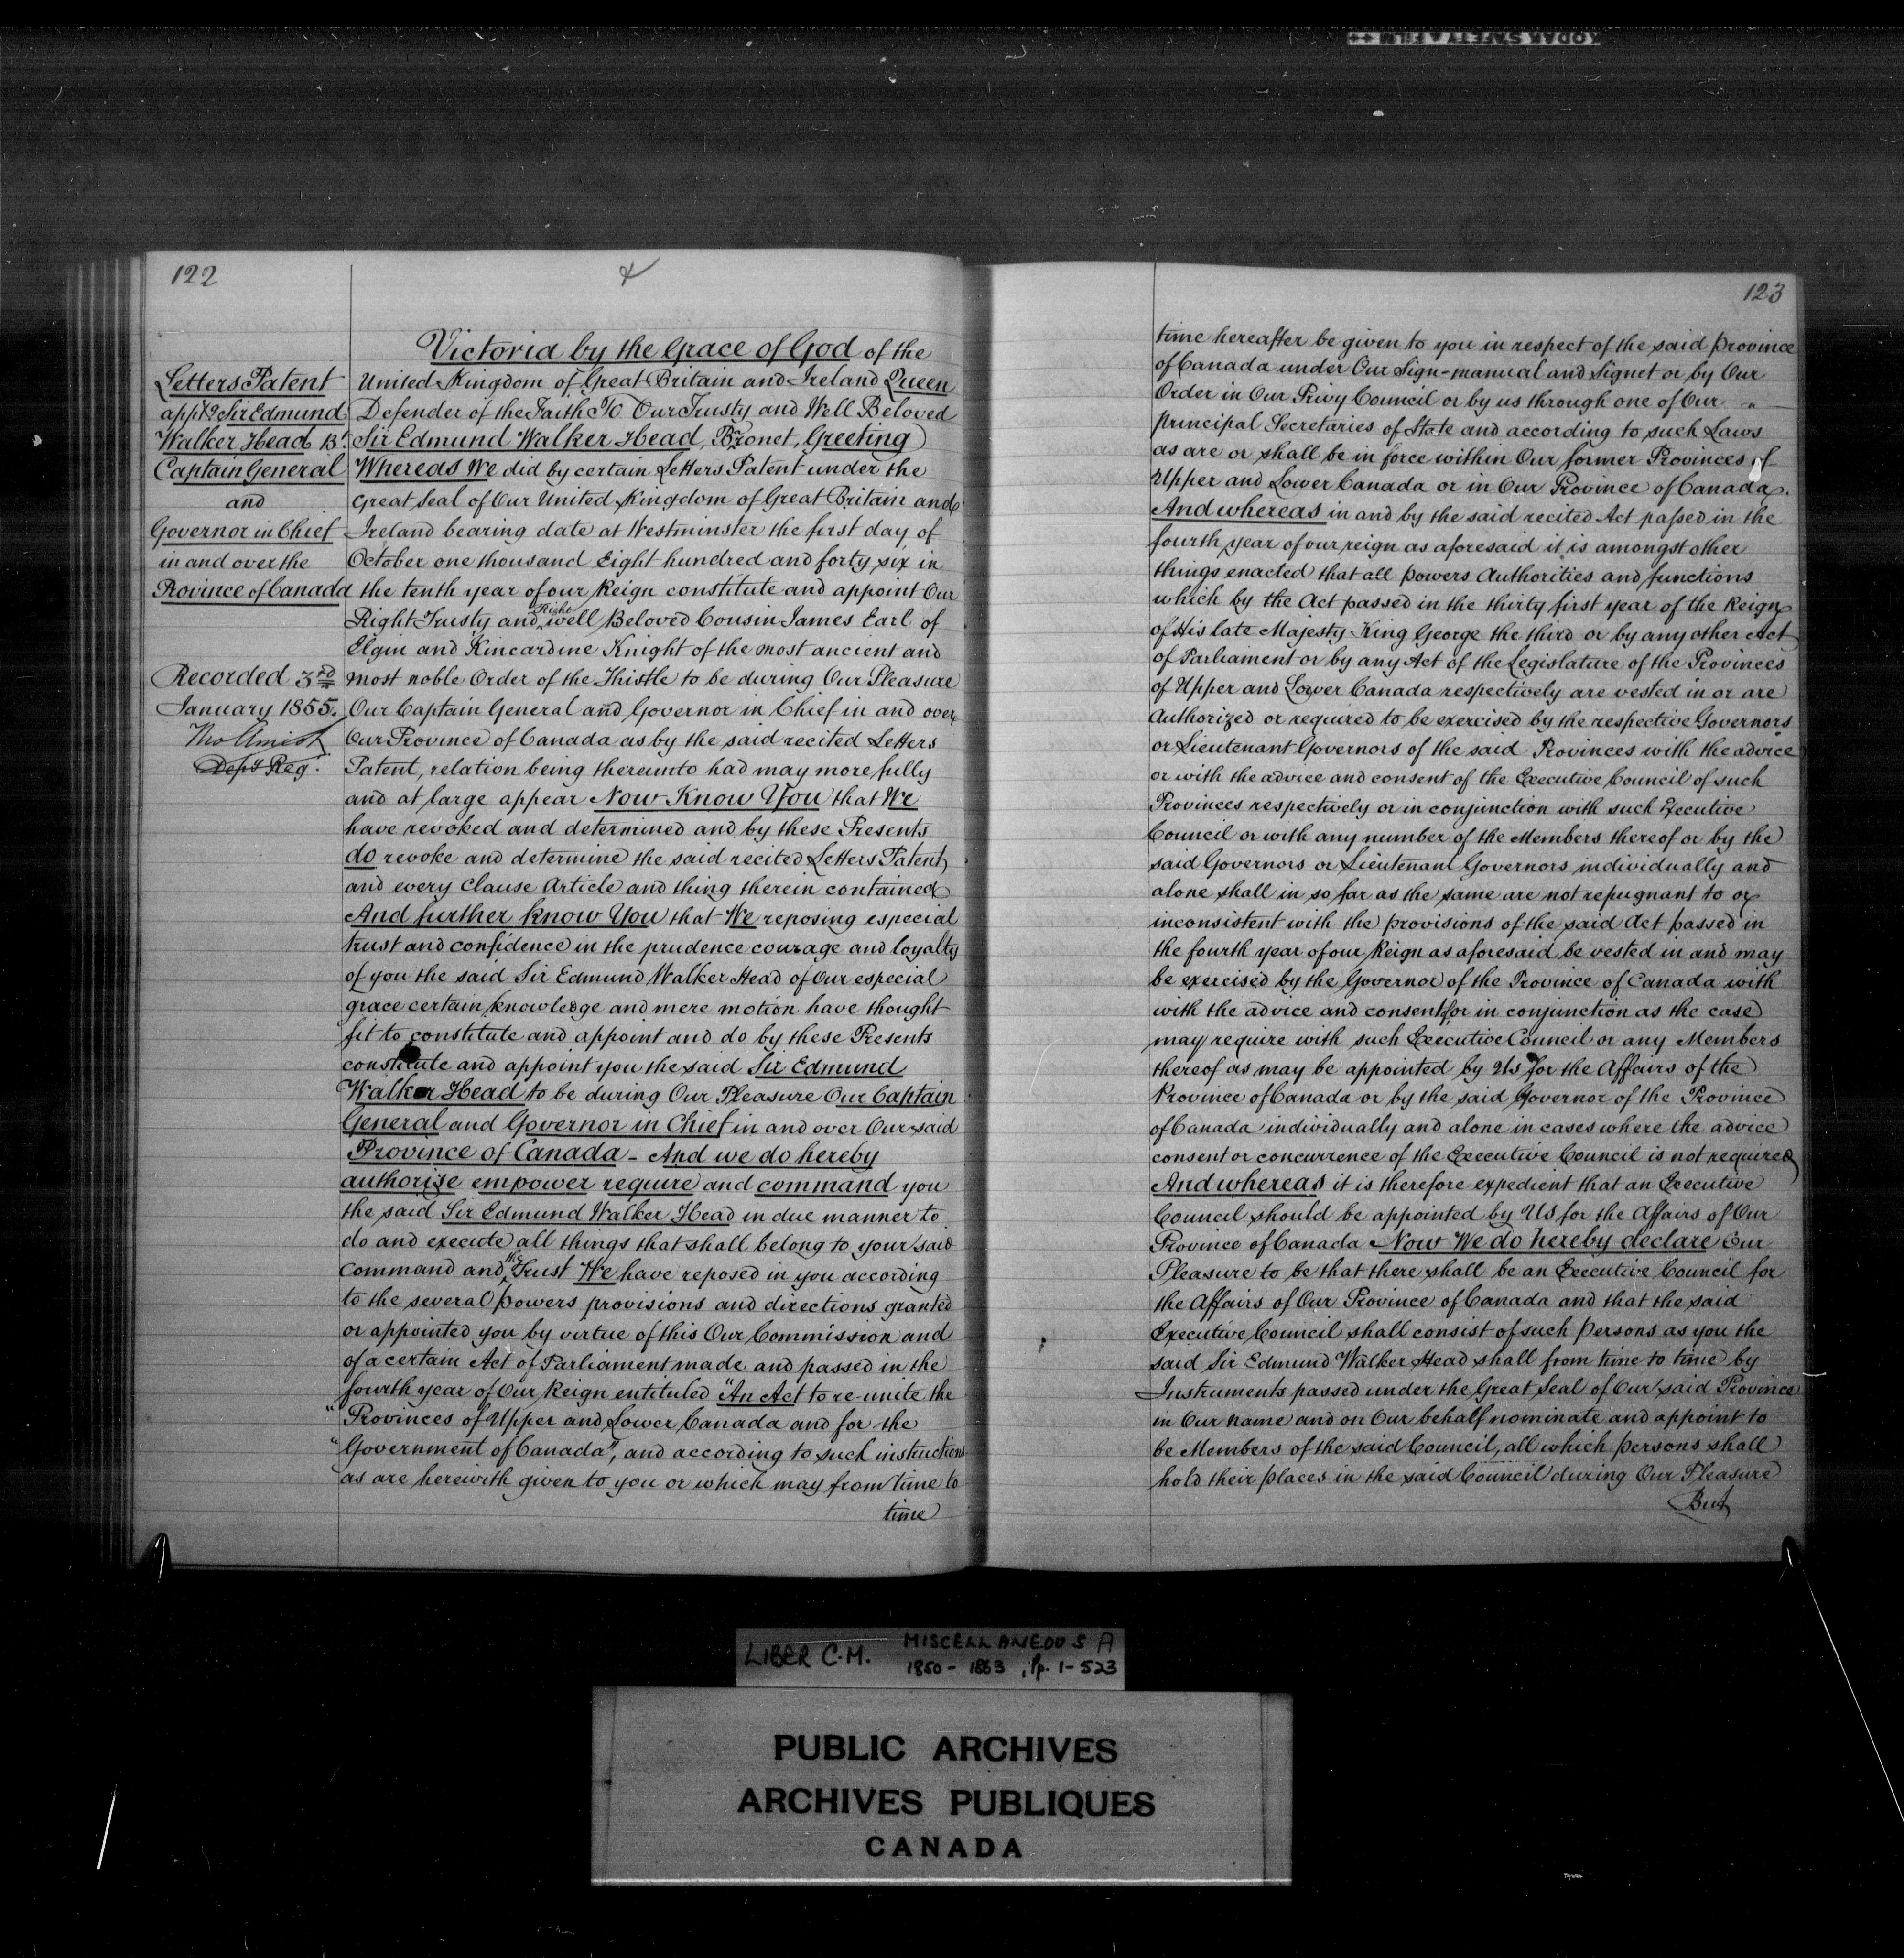 KODAK SAFETY FILM
122
Letters Patent
Sir Edmund
Walker Head Bt
Captain General
and
Governor in Chief
in and over the
Province of Canada
Recorded 3rd
January 1855.
Depy Reg.
Victoria by the Grace of God of the
United Kingdom of Great Britain and Ireland Queen
Defender of the Faith To Our Trusty and Well Beloved
Sir Edmund Walker Head, Baronet, Greeting
Whereas We did by certain Letters Patent under the
Great Seal of Our United Kingdom of Great Britain and
Ireland bearing date at Westminster the first day of
October one thousand Eight hundred and forty six in
the tenth year of our Reign constitute and appoint Our
Right Trusty and Right well Beloved Cousin James Earl of
Elgin and Kincardine Knight of the most ancient and
most noble Order of the Thistle to be during Our Pleasure
Our Captain General and Governor in Chief in and over
Our Province of Canada as by the said recited Letters
Patent, relation being thereunto had may more fully
and at large appear Now Know You that We
have revoked and determined and by these Presents
do revoke and determine the said recited Letters Patent
and every Clause Article and thing therein contained
And further know You that We reposing especial
trust and confidence in the prudence courage and loyalty
of you the said Sir Edmund Walker Head of Our especial
grace certain knowledge and mere motion have thought
fit to constitute and appoint and do by these Presents
constitute and appoint you the said Sir Edmund
Walker Head to be during Our Pleasure Our Captain
General and Governor in Chief in and over Our said
Province of Canada - And we do hereby
authorise empower require and command you
the said Sir Edmund Walker Head in due manner to
do and execute all things that shall belong to your said
Command and the Trust We have reposed in you according
to the several powers provisions and directions granted
or appointed you by virtue of this Our Commission and
of a certain Act of Parliament made and passed in the
fourth year of Our Reign entituled "An Act to re-unite the
"Provinces of Upper and Lower Canada and for the
"Government of Canada", and according to such instructions
as are herewith given to you or which may from time to
time
123
time hereafter be given to you in respect of the said Province
of Canada under Our Sign-manual and Signet or by Our
Order in Our Privy Council or by us through one of Our
Principal Secretaries of State and according to such Laws
as are or shall be in force within Our former Provinces of
Upper and Lower Canada or in Our Province of Canada.
And whereas in and by the said recited Act passed in the
fourth year of our reign as aforesaid it is amongst other
things enacted that all powers Authorities and functions
which by the Act passed in the thirty first year of the Reign
of His late Majesty King George the third or by any other Act
of Parliament or by any Act of the Legislature of the Provinces
of Upper and Lower Canada respectively are vested in or are
Authorized or required to be exercised by the respective Governors
or Lieutenant Governors of the said Provinces with the advice
or with the advice and consent of the Executive Council of such
Provinces respectively or in conjunction with such Executive
Council or with any number of the Members thereof or by the
said Governors or Lieutenant Governors individually and
alone shall in so far as the same are not repugnant to or
inconsistent with the provisions of the said Act passed in
the fourth year of our Reign as aforesaid be vested in and may
be exercised by the Governor of the Province of Canada with
with the advice and consent or in conjunction as the case
may require with such Executive Council or any Members
thereof as may be appointed by Us for the Affairs of the
Province of Canada or by the said Governor of the Province
of Canada individually and alone in cases where the advice
consent or concurrence of the Executive Council is not required
And whereas it is therefore expedient that an Executive
Council should be appointed by US for the Affairs of Our
Province of Canada Now We do hereby declare Our
Pleasure to be that there shall be an Executive Council for
the Affairs of Our Province of Canada and that the said
Executive Council shall consist of such Persons as you the
said Sir Edmund Walker Head shall from time to time by
Instruments passed under the Great Seal of Our said Province
in Our name and on Our behalf nominate and appoint to
be Members of the said Council, all which persons shall
hold their places in the said Council during Our Pleasure
But
LIBER C.M. MISCELLANEOUS A
1850 - 1863, Pp. 1-523
PUBLIC ARCHIVES
ARCHIVES PUBLIQUES
CANADA